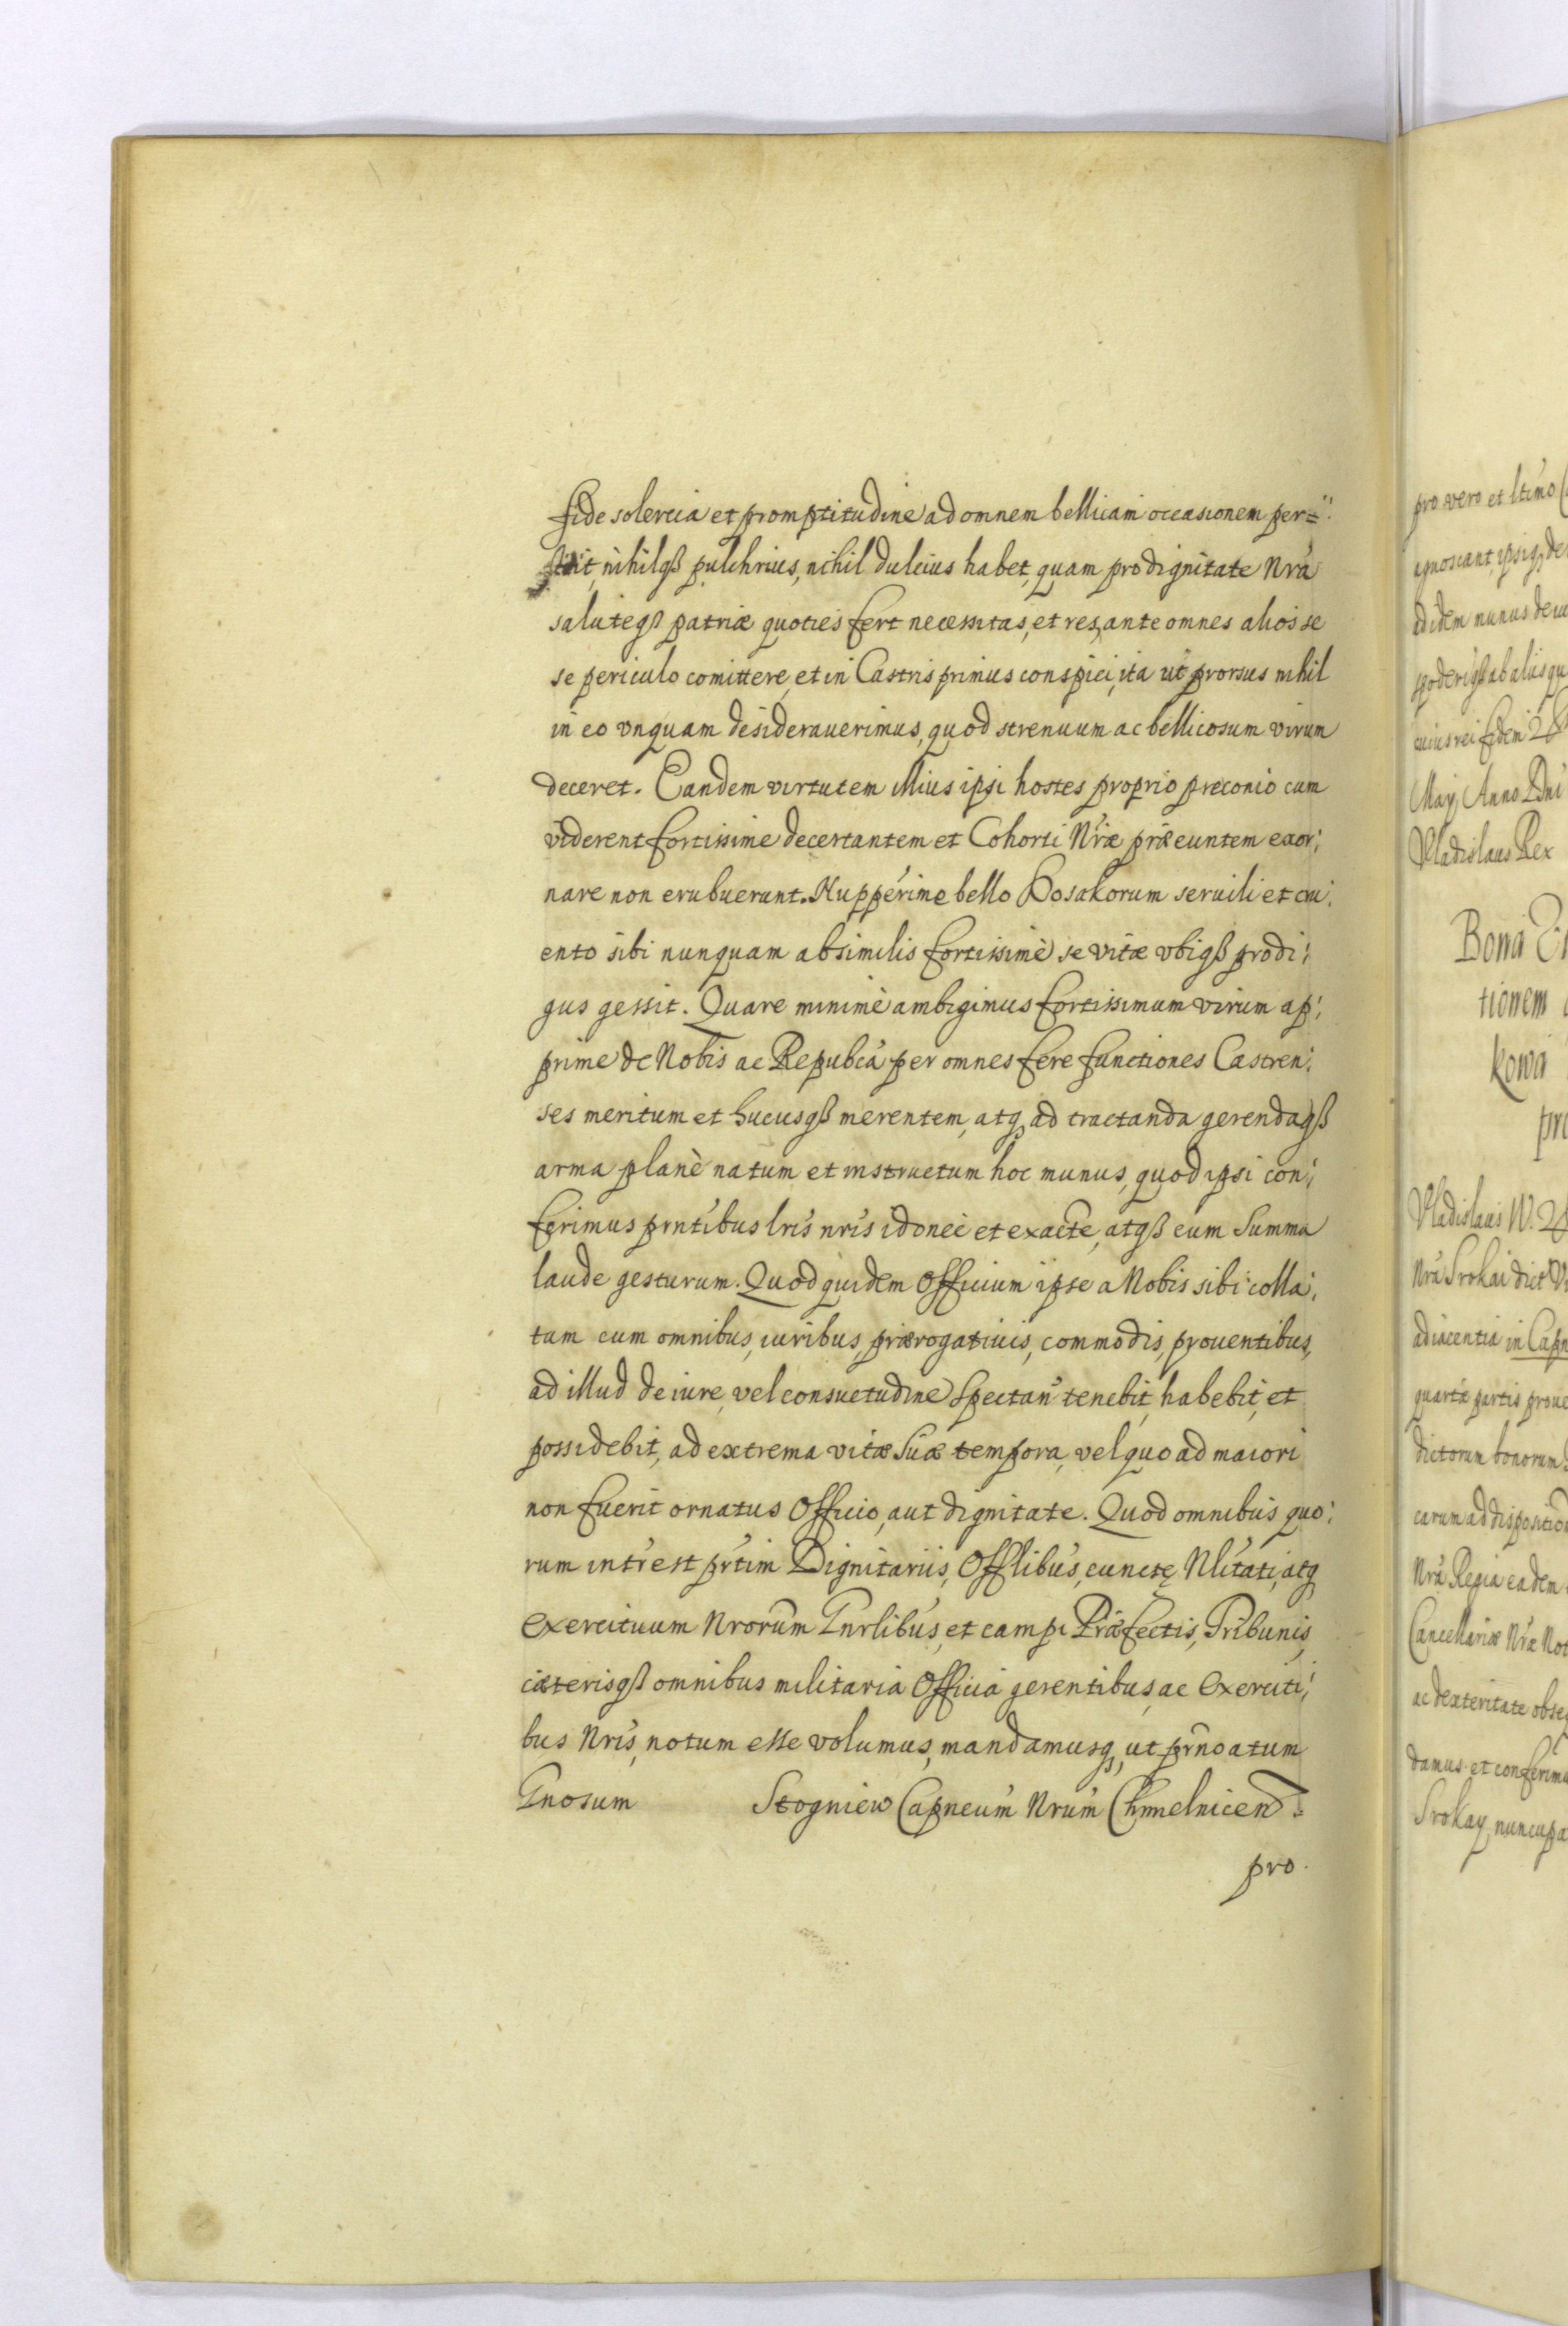 fide solercia et promptitudine ad omnem bellicam occasionem per=
stit, nihilqß pulchrius, nihil dulcius habet, quam pro dignitate Nrá
saluteqß patriæ quoties fert necessitas, et res, ante omnes alios se
se periculo comittere, et in Castris primus conspici, ita ut prorsus nihil
in eo vnquam desiderauerimus, quod strenuum ac bellicosum virum
deceret. Eandem virtutem illius ipsi hostes proprio preconio cum
viderent fortissime decertantem et Cohorti Nræ præeuntem exor:
nare non erubuerunt. Nuppérime bello Kosakorum seruili et cru:
ento sibi nunquam absimilis fortissimè se vitæ vbiqß prodi:
gus gessit. Quare minimè ambigimus fortissimum virum ap:
prime de Nobis ac Repubcá per omnes fere functiones Castren:
ses meritum et hucusqß merentem, atq ad tractanda gerendaqß
arma planè natum et instructum hoc munus, quod ipsi con:
ferimus prntibus lris nris idoneè et exacte, atqß cum Summa
laude gesturum. Quod quidem Officium ipse a Nobis sibi colla:
tum cum omnibus, iuribus, prærogatiuis, commodis, prouentibus,
ad illud de iure, vel consuetudine Spectan tenebit, habebit, et
possidebit, ad extrema vitæ Suæ tempora, vel quo ad maiori
non fuerit ornatus Officio, aut dignitate. Quod omnibus quo:
rum intrest prtim Dignitariis, Offlibus, cunctę Nlitati, atq
Exercituum Nrorum Gnrlibus, et campi Præfectis, Tribunis,
cæterisqß omnibus militaria Officia gerentibus, ac Exerciti:
bus Nris, notum esse volumus, mandamusq, ut prnoatum
Gnosum Stogniew Capneum Nrum Chmelnicen:
pro.
pro vero et ltimo
agnoscant, ipsiq, de
ad idem munus
ab aliis qu
cuius rei fidem
May Anno Dni
Vladislaus Rex
Bona
tionem
kowa
Vladislaus IV.
Nra Srokai dict
adiacentia in Capn
quartæ partis proue
dictorum bonorum
earum ad disposition
Nra Regia eadem
Cancellariæ Nræ Not
ac dexteritate obse
damus et conferim
Srokay nuncupa